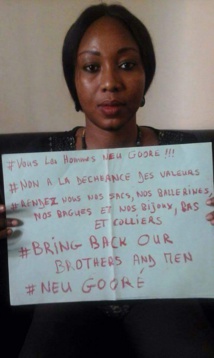 #VOUS LES HOMMES NEU GOORÉ !!!
#NON A LA DECHEANCE DES VALEURS
#RENDEZ VOUS NOS SACS, NOS BALLERINES,
NOS BAGUES ET NOS BIJOUX, BAS
ET COLLIERS
#BRING BACK OUR
BROTHERS AND MEN
#NEU GOORÉ